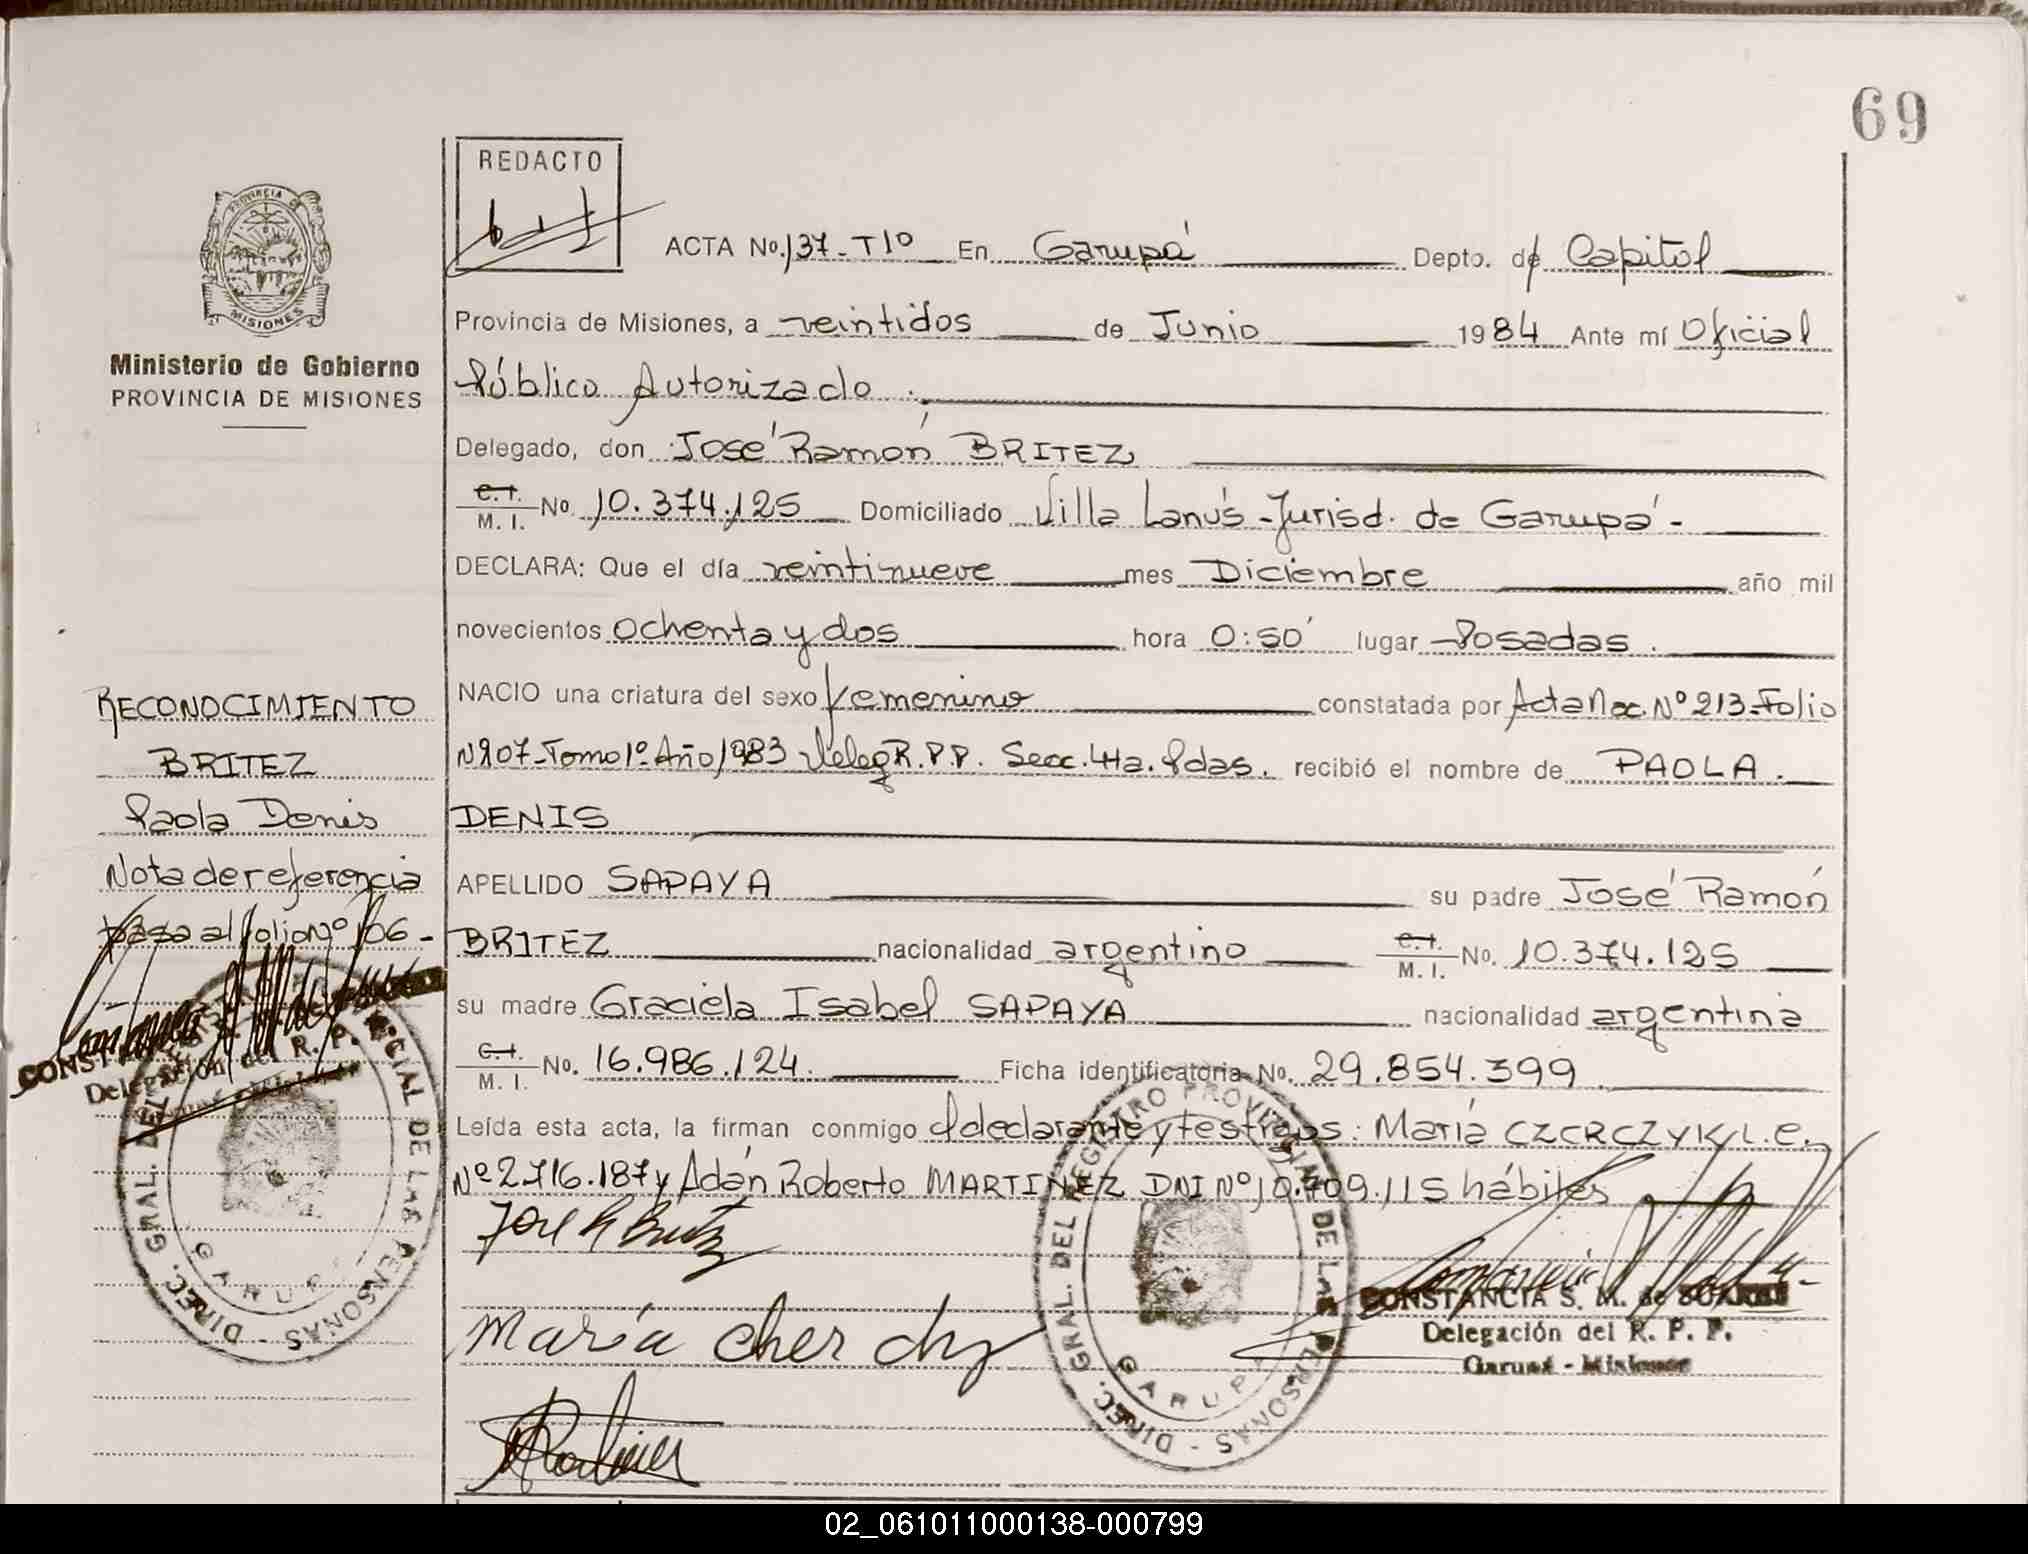 69
REDACTO
ACTA No. 137-T1º En Garupá Depto. de Capital
PROVINCIA DE
MISIONES
Provincia de Misiones, a veintidos de Junio 1984 Ante mí Oficial
Ministerio de Gobierno
PROVINCIA DE MISIONES
Público Autorizado.
Delegado, don José Ramón BRITEZ
C.I. M. I. No. 10.374.125 Domiciliado Villa Lanús-Jurisd. de Garupá-
DECLARA: Que el día veintinueve mes Diciembre año mil
novecientos ochenta y dos hora 0:50' lugar Posadas.
NACIO una criatura del sexo femenino constatada por Acta Nac. Nº 213-Folio
Nº 207-Tomo 1º-Año 1983 Deleg R.P.P. Secc. 4ta. Pdas. recibió el nombre de PAOLA.
DENIS
APELLIDO SAPAYA su padre José Ramón
BRITEZ nacionalidad argentino C.I. M. I. No. 10.374.125
su madre Graciela Isabel SAPAYA nacionalidad argentina
C.I. M. I. No. 16.986.124. Ficha identificatoria No. 29.854.399
Leída esta acta, la firman conmigo el declarante y testigos: María CZERCZYK L.e.
Nº 2.716.187 y Adán Roberto MARTINEZ DNI Nº 10.709.115 hábiles
RECONOCIMIENTO
BRITEZ
Paola Denis
Nota de referencia
pasa al folio nº 106-
Delegación del R. P. P.
DIREC. GRAL. DEL REGISTRO PROVINCIAL DE LAS PERSONAS
GARUPA
José R Britez
María Cher
CONSTANCIA S. M. de SUAREZ
Delegación del R. P. P.
Garupá - Misiones
DIREC. GRAL. DEL REGISTRO PROVINCIAL DE LAS PERSONAS
GARUPA
02_061011000138-000799